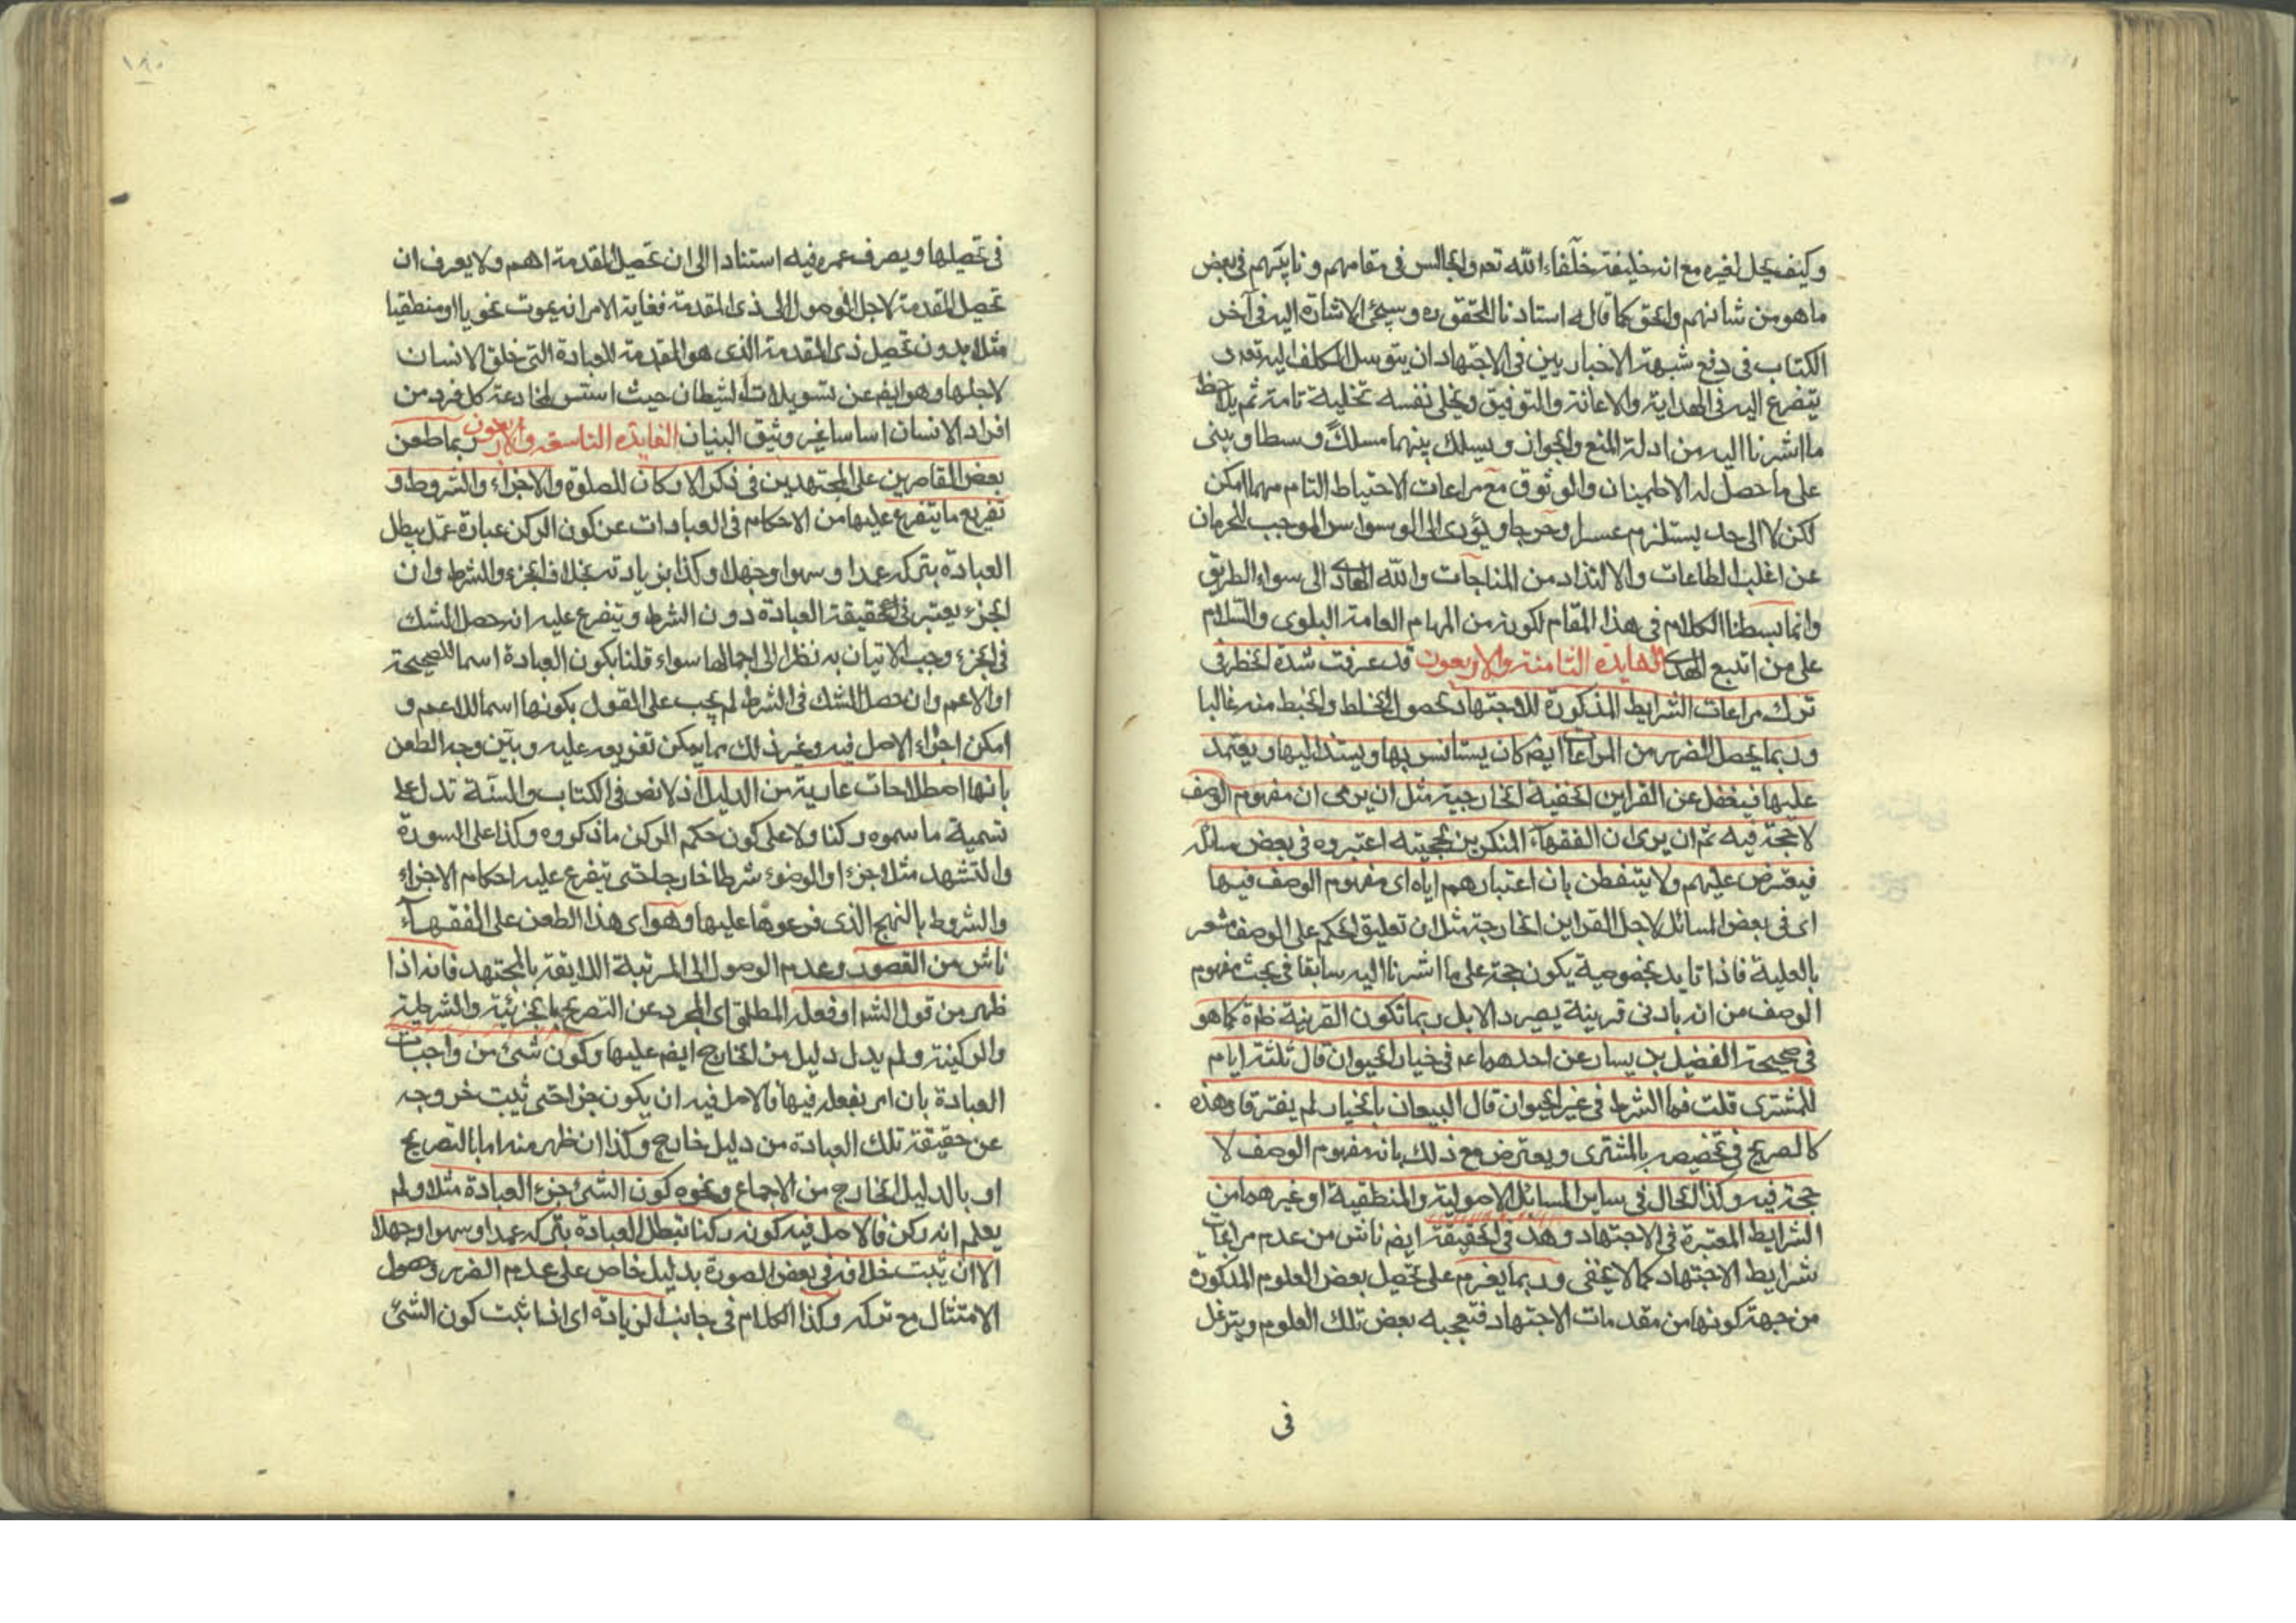 وكيف يحل لغيره مع انه خليفة خلفاء الله تعم والجالس في مقامهم ونايبهم في بعض
ما هو من شانهم والحق كما قال به استادنا المحقق ره وسيجئ الاشارة اليه في آخر
الكتاب في دفع شبهة الاخباريين في الاجتهاد ان يتوسل المكلف اليه تعم و
يتضرع اليه في الهداية والاعانة والتوفيق ويخلى نفسه تخلية تامة ثم يلاحظ
ما اشرنا اليه من ادلة المنع والجواز ويسلك بينهما مسلكاً وسطا ويبنى
على ما حصل له الاطمينان والوثوق مع مراعات الاحتياط التام مهما امكن
لكن لا الى حد يستلزم عسرا وحرجا ويؤدى الى الوسواس الموجب للحرمان
عن اغلب الطاعات والالتذاد من المناجات والله الهادى الى سواء الطريق
وانما بسطنا الكلام في هذا المقام لكونه من المهام العامة البلوى والسّلام
على من اتبع الهدى الفايدة الثامنة والاربعون قد عرفت شدة الخطر في
ترك مراعات الشرايط المذكورة للاجتهاد لحصول الخلط والخبط منه غالبا
وربما يحصل الضرر من المراعات ايضم كان يستانس بها ويستند اليها ويعتمد
عليها فيغفل عن القراين الخفية الخارجية مثل ان يرى ان مفهوم الوصف
لا حجة فيه ثم ان يرى ان الفقهاء المنكرين لحجيته اعتبروه في بعض مسائل
فيعترض عليهم ولا يتفطن بان اعتبارهم اياه اى مفهوم الوصف فيها
اى في بعض المسائل لاجل القراين الخارجة مثل ان تعليق الحكم على الوصف مشعر
بالعلية فاذا تايد بخصوصية يكون حجة على ما اشرنا اليه سابقا في بحث مفهوم
الوصف من انه بادنى قرينة يصير دالا بل ربما تكون القرينة ظرة كما هو
في صحيحة الفضيل بن يسار عن احدهما عم في خيار الحيوان قال ثلثة ايام
للمشترى قلت فما الشرط في غير الحيوان قال البيعان بالخيار لم يفترقا وهذه
كالصريح في تخصيصه بالمشترى ويعترض مع ذلك بانه مفهوم الوصف لا
حجة فيه وكذا الحال في ساير المسائل الاصولية والمنطقية او غيرهما من
الشرايط المعتبرة في الاجتهاد وهذ في الحقيقة ايضم ناش من عدم مراعات
شرايط الاجتهاد كما لا يخفى وربما يغرم على تحصيل بعض العلوم المذكورة
من جهة كونها من مقدمات الاجتهاد فتعجبه بعض تلك العلوم ويتوغل
في
١٨٠
في تحصيلها ويصرف عمره فيه استنادا الى ان تحصيل المقدمة اهم ولا يعرف ان
تحصيل المقدمة لاجل الوصول الى ذى المقدمة فغاية الامر انه يموت نحويا او منطقيا
مثلا بدون تحصيل ذى المقدمة الذى هو المقدمة للعبادة التى خلق الانسان
لاجلها وهو ايضم عن تسويلات الشيطان حيث استس لمخادعة كل فرد من
افراد الانسان اساسا غير وثيق البنيان الفايدة التاسعة والاربعون ربما طعن
بعض القاصرين على المجتهدين في ذكر الاركان للصلوة والاجزاء والشروط و
تفريع ما يتفرع عليها من الاحكام في العبادات عن كون الركن عبارة عمّا يبطل
العبادة بتركه عمدا وسهوا وجهلا وكذا بزيادته بخلاف الجزء والشرط وان
الجزء يعتبر في حقيقة العبادة دون الشرط ويتفرع عليه انه حصل الشك
في الجزء وجب الاتيان به نظرا الى اجمالها سواء قلنا بكون العبادة اسما للصحيحة
او الاعم وان حصل الشك في الشرط لم يجب على القول بكونها اسما للاعم و
امكن اجراء الاصل فيه وغير ذلك مما يمكن تفريعه عليه وبيّن وجه الطعن
بانها اصطلاحات عارية من الدليل اذ لا نص في الكتاب والسنة تدل على
تسمية ما سموه ركنا ولا على كون حكم الركن ما ذكروه وكذا على السورة
والتشهد مثلا جزء او الوضوء شرطا خارجا حتى يتفرع عليه احكام الاجزاء
والشروط بالنهج الذى فرعوها عليها وهو اى هذا الطعن على الفقهاء
ناش من القصور وعدم الوصول الى المرتبة اللايقة بالمجتهد فانه اذا
ظهر من قول الشم او فعله المطلق اى المجرد عن التصريح بالجزئية والشرطية
والركينة ولم يدل دليل من الخارج ايضم عليها وكون شئ من واجبات
العبادة بان امر بفعله فيها فالاصل فيه ان يكون جزا حتى يثبت خروجه
عن حقيقة تلك العبادة من دليل خارج وكذا ان ظهر منه اما بالتصريح
او بالدليل الخارج من الاجماع ونحوه كون الشئ جزء العبادة مثلا ولم
يعلم انه ركن فالاصل فيه كونه ركنا تبطل العبادة بتركه عمدا وسهوا وجهلا
الا ان يثبت خلافه في بعض الصورة بدليل خاص على عدم الضرر وحصول
الامتثال مع تركه وكذا الكلام في جانب الزيادة اى اذا ثبت كون الشئ